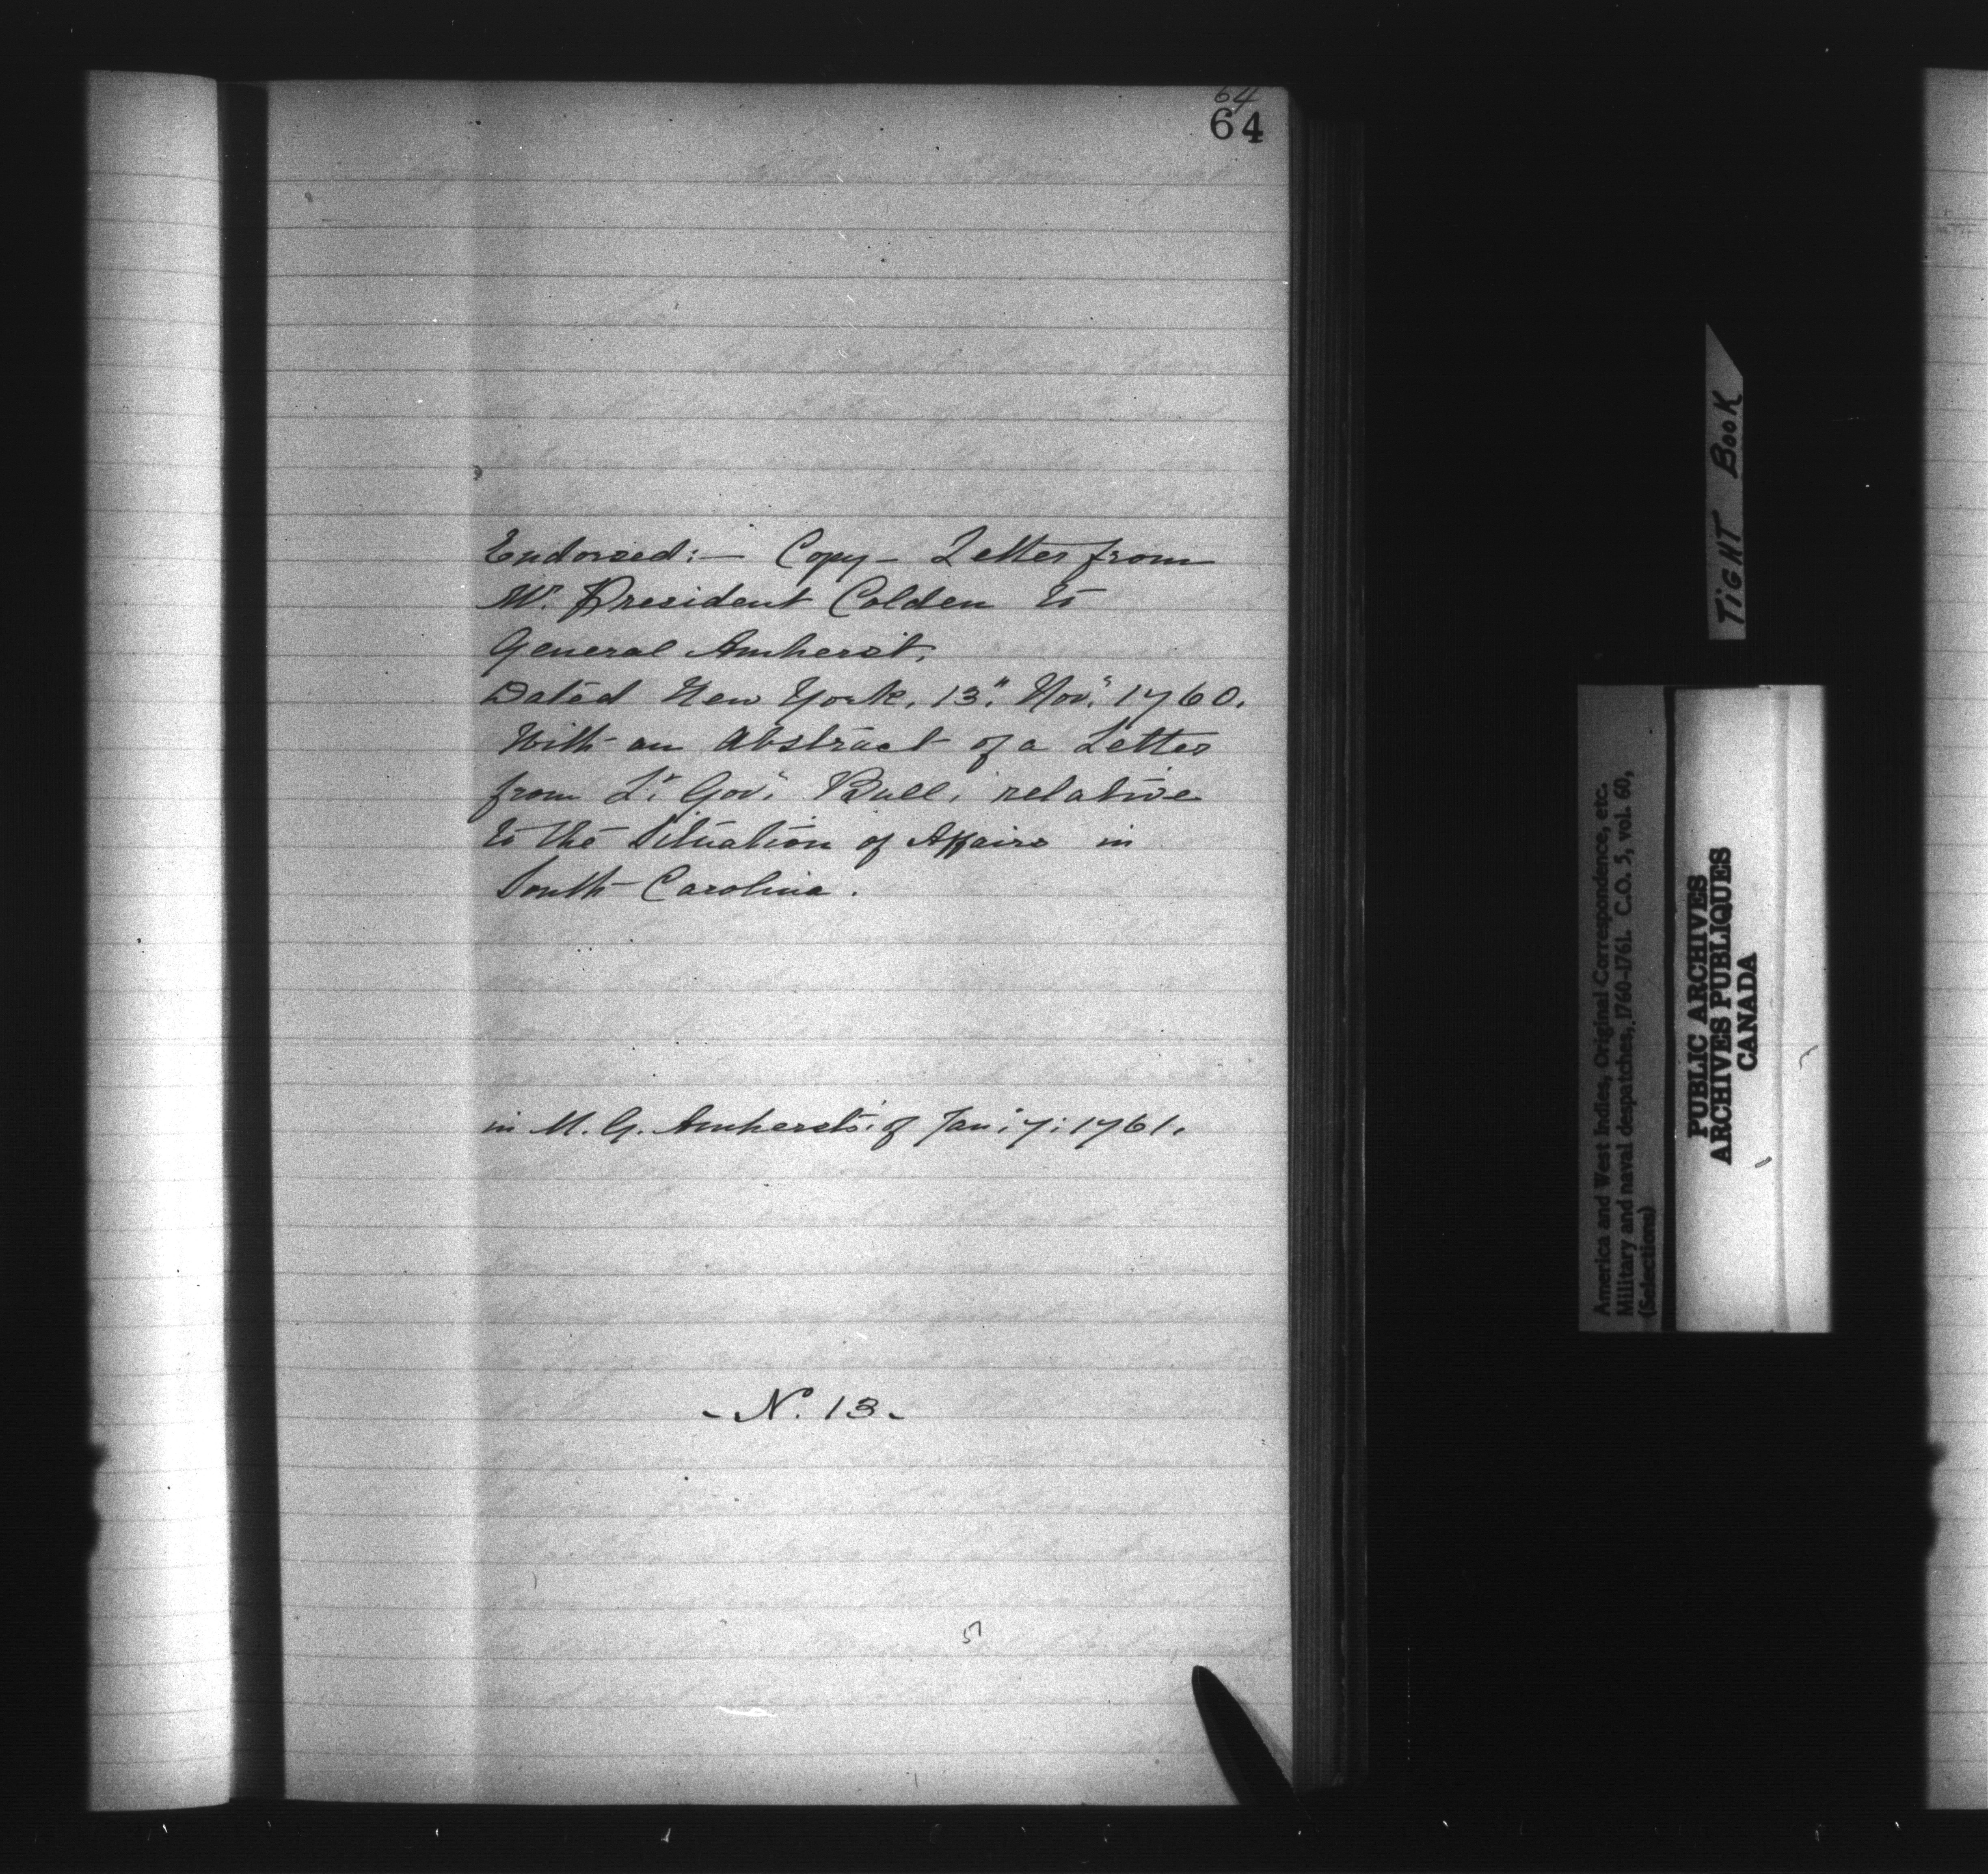 64
64
Endorsed:— Copy – Letter from
Mr. President Colden to
General Amherst,
Dated New York, 13." Nov." 1760.
With an Abstract of a Letter
from Lt. Gov." Bull, relative
to the Situation of Affairs in
South Carolina.
in M. G. Amherst's of Jan: 7: 1761.
- N. 13 -
5
TIGHT BOOK
America and West Indies, Original Correspondence, etc.
Military and naval despatches, 1760-1761. C.O. 5, vol. 60,
(Selections)
PUBLIC ARCHIVES
ARCHIVES PUBLIQUES
CANADA